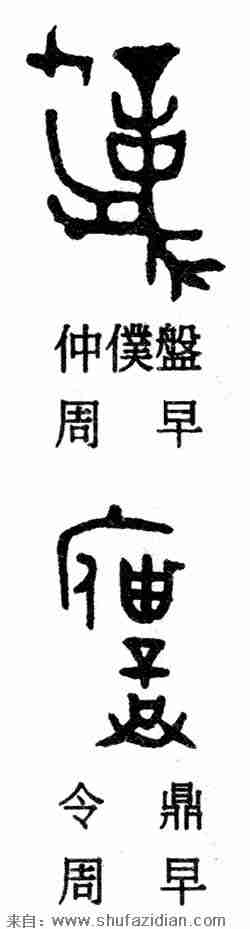 僕
仲僕盤
周早
僕
令鼎
周早
来自：www.shufazidian.com